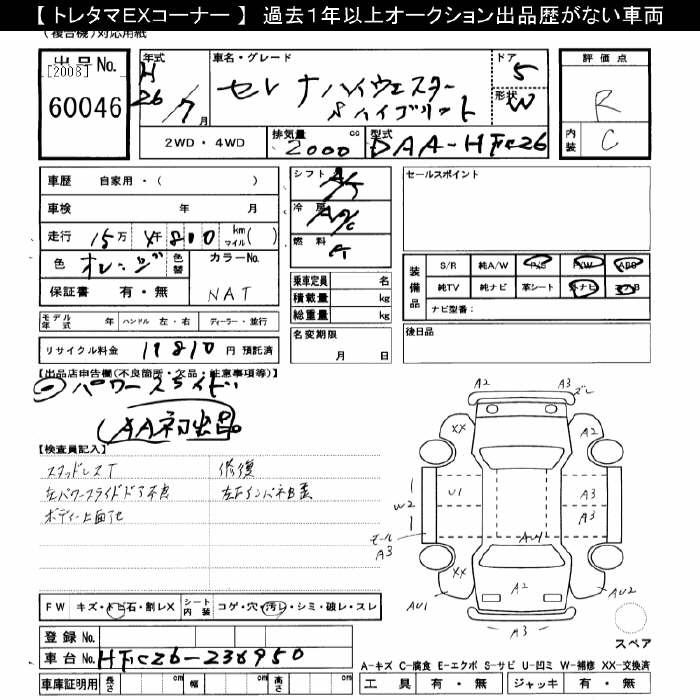 【トレタマEXコーナー】 過去1年以上オークション出品歴がない車両
(複合機)対応用紙
出品No. [2008] 60046
年式 H26/7月
車名・グレード セレナ ハイウェスター Sハイブリット
ドア 5
形状 W
2WD・4WD
排気量 2000 cc
型式 DAA-HFC26
評価点 R
内装 C
車歴 自家用・( )
車検 年 月
走行 15万4千800 km マイル( )
色 オレンジ 色替
カラーNo. NAT
保証書 有・無
モデル年式 年 ハンドル 左・右 ディーラー・並行
リサイクル料金 11810 円 預託済
シフト A/T
冷房 A/C
燃料
乗車定員 名
積載量 kg
総重量 kg
名変期限 月 日
セールスポイント
装備品
S/R 純A/W P/S P/W ABS
純TV 純ナビ 革シート 外ナビ エアB
ナビ型番:
後日品
【出品店申告欄(不良箇所・欠品・注意事項等)】
パワースライド
(AA初出品)
【検査員記入】
スタッドレスT
左パワースライドドア不良
ボディー上面
修復
左Fインパネ
FW キズ・トビ石・割レX
シート内装 コゲ・穴・汚レ・シミ・破レ・スレ
登録No.
車台No. HFC26-236950
車庫証明用 長さ cm 幅 cm 高さ cm
A2 A3 ズレ
XX A2
U1 A3
W2
A3
モール A3
AU1
XX A2
AU1 AU2
A3
スペア
A-キズ C-腐食 E-エクボ S-サビ U-凹ミ W-補修 XX-交換済
工具 有・無 ジャッキ 有・無